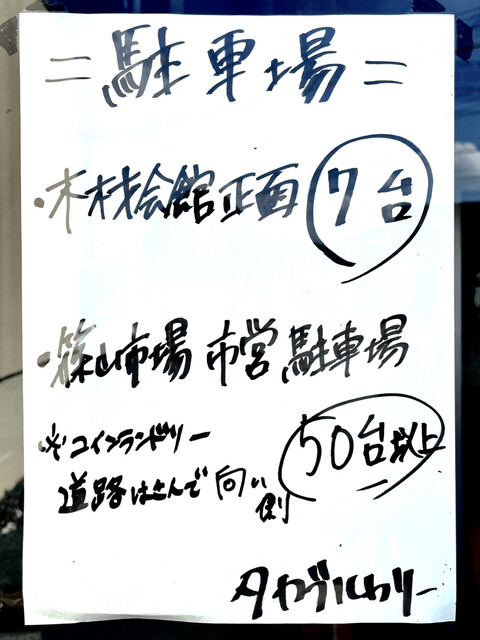 =駐車場=
・木材会館正面 7台
・篠山市場 市営駐車場
※コインランドリー
道路はさんで向い側
50台以上
タカブルカリー